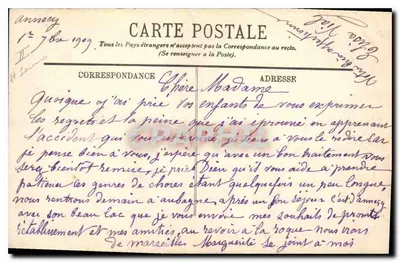 annecy
1er 7bre 1909
CARTE POSTALE
Tous les Pays étrangers n'acceptent pas la Correspondance au recto.
(Se renseigner à la Poste).
CORRESPONDANCE
ADRESSE
Chère Madame
Quoique j'ai prié vos enfants de vous exprimer
les regrets et la peine que j'ai éprouvé en apprenant
l'accident qui vous est je tiens à vous le redire car
je pense bien à vous, j'espère qu'avec un bon traitement vous
serez bientôt remise, je prie Dieu qu'il vous aide à prendre
patience les genres de choses étant quelquefois un peu longue,
nous rentrons demain à aubagne, après un bon séjour c'est d'annecy
avec son beau lac que je vous envoie mes souhaits de prompt
rétablissement et mes amitiés, au revoir à la roque nous irons
de marseille Marguerite se joint à moi